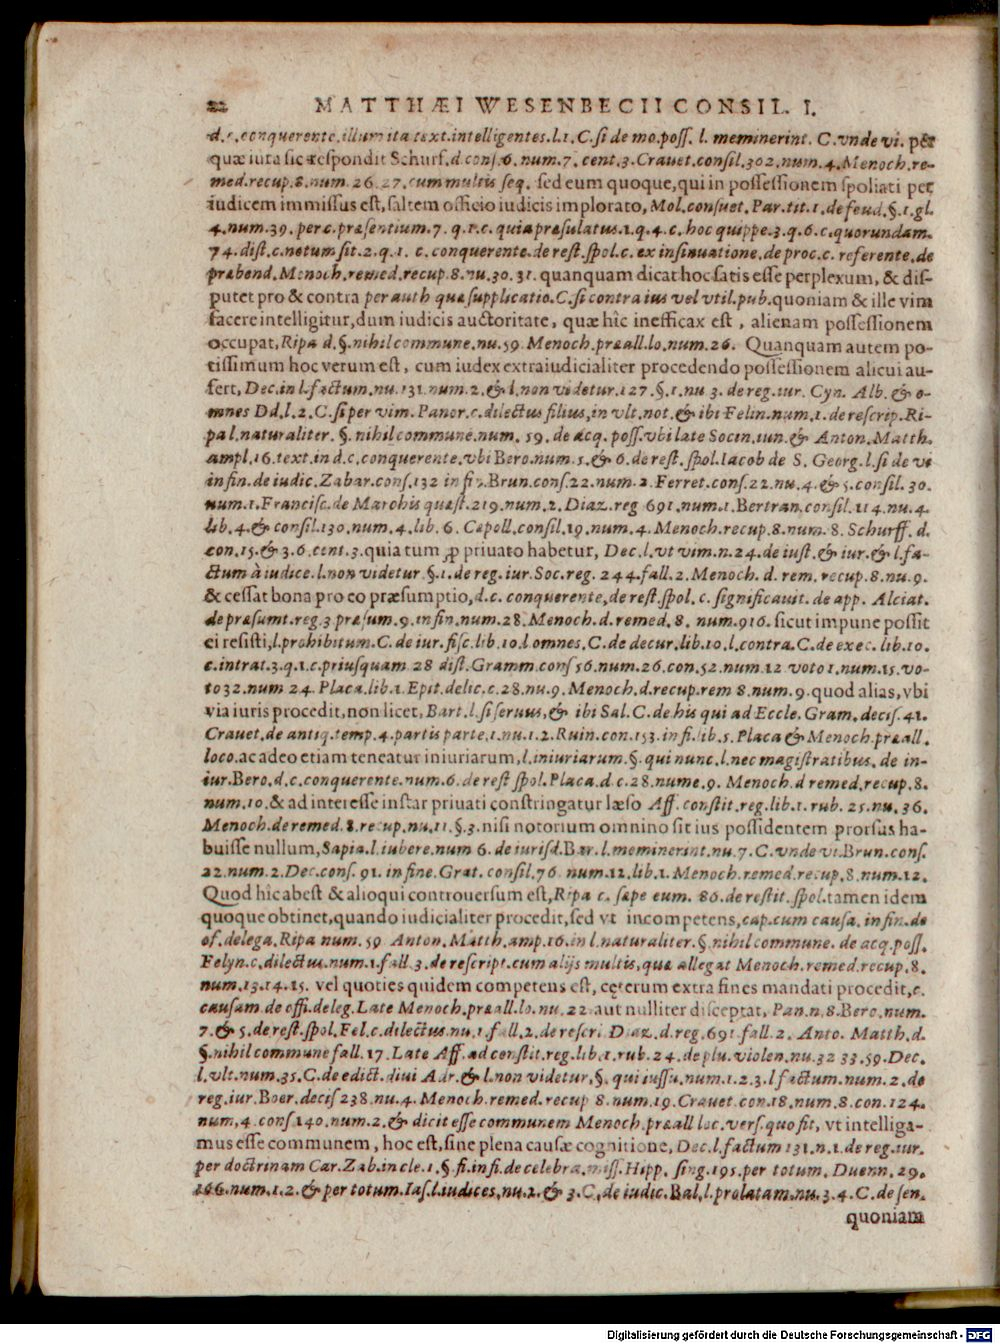 22 MATTHÆI WESENBECII CONSIL. I.
d.c.conquerente.illum ita text.intelligentes.l.1.C.si de mo.poss. l. meminerint. C.vnde vi. per
quæ iura sic respondit Schurf.d cons.6.num.7. cent.3.Crauet.consil.302.num.4.Menoch.re-
med.recup.8.num.26.27.cum multis seq. sed eum quoque, qui in possessionem spoliati per
iudicem immissus est, saltem officio iudicis implorato, Mol.consuet.Par.tit.1.de feud.§.1.gl.
4.num.39.per c.præsentium.7.q.1.c.quia præsulatus.1.q.4.c.hoc quippe.3.q.6.c.quorundam.
74.dist.c.notum sit.2.q.1. c. conquerente.de rest.spol.c.ex insinuatione.de proc.c.referente.de
præbend.Menoch.remed.recup.8.nu.30.31.quanquam dicat hoc satis esse perplexum, & dis-
putet pro & contra per auth quæ supplicatio.C.si contra ius vel vtil.pub.quoniam & ille vim
facere intelligitur, dum iudicis auctoritate, quæ hîc inefficax est, alienam possessionem
occupat, Ripa d.§.nihil commune.nu.59.Menoch.præall.lo.num.26. Quanquam autem po-
tissimum hoc verum est, cum iudex extraiudicialiter procedendo possessionem alicui au-
fert, Dec.in l.factum.nu.131.num.2.& l.non videtur.127.§.1.nu 3.de reg.iur. Cyn. Alb. & o-
mnes Dd.l.2.C.si per vim.Panor.c.dilectus filius,in vlt.not.& ibi Felin.num.1.de rescrip.Ri-
pa l.naturaliter. §.nihil commune.num. 59.de acq. poss.vbi late Socin.iun.& Anton.Matth.
ampl.16.text.in d.c.conquerente.vbi Bero.num.5.& 6.de rest. spol.Iacob de S. Georg.l.si de vi
in fin.de iudic.Zabar.cons.132 in fin.Brun.cons.22.num.2.Ferret.cons.22.nu.4.& 5.consil.30.
num.1.Francisc.de Marchis quæst.219.num.2.Diaz.reg 691.num.1.Bertran.consil.114.nu.4.
lib.4.& consil.130.num.4.lib.6. Cepoll.consil.19.num.4.Menoch.recup.8.num.8.Schurff.d.
con.15.& 3.6.cent.3.quia tum ꝓ priuato habetur, Dec.l.vt vim.n.24.de iust.& iur.& l.fa-
ctum à iudice.l.non videtur.§.1.de reg.iur.Soc.reg. 244.fall.2.Menoch.d.rem.recup.8.nu.9.
& cessat bona pro eo præsumptio, d.c. conquerente,de rest.spol. c. significauit. de app. Alciat.
de præsumt.reg.3 præsum.9.in fin.num.28.Menoch.d.remed.8. num.916. sicut impune possit
ei resisti, l.prohibitum.C.de iur.fisc.lib.10.l omnes.C.de decur.lib.10.l.contra.C.de exec.lib.10.
c.intrat.3.q.1.c.priusquam 28 dist.Gramm.cons 56.num.26.con.52.num.12 voto 1.num.15.vo-
to 32.num 24.Placa.lib.1.Epit.delic.c.28.nu.9.Menoch.d.recup.rem 8.num.9.quod alias, vbi
via iuris procedit, non licet, Bart.l.si seruus,& ibi Sal.C.de his qui ad Eccle.Gram.decis.41.
Crauet.de antiq.temp.4.partis parte.1.nu.1.2.Ruin.con.153.in fi.lib.5.Placa & Menoch.præall.
loco.ac adeo etiam teneatur iniuriarum, l.iniuriarum.§.qui nunc.l.nec magistratibus.de in-
iur.Bero.d.c.conquerente.num.6.de rest spol.Placa.d.c.28.nume.9. Menoch.d remed.recup.8.
num.10.& ad interesse instar priuati constringatur læso Aff.constit.reg.lib.1.rub. 25.nu.36.
Menoch.de remed.8.recup.nu.11.§.3.nisi notorium omnino sit ius possidentem prorsus ha-
buisse nullum, Sapia.l.iubere.num 6.de iurisd.Bar.l.meminerint.nu.7.C.vnde vi.Brun.cons.
22.num.2.Dec.cons. 91.in fine.Grat. consil.76 num.12.lib.1.Menoch.remed.recup.8.num.12.
Quod hîc abest & alioqui controuersum est, Ripa c. sæpe eum. 86.de restit.spol.tamen idem
quoque obtinet, quando iudicialiter procedit, sed vt incompetens, cap.cum causa.in fin.de
of.delega.Ripa num.59 Anton.Matth.amp.16.in l.naturaliter.§.nihil commune.de acq.poss.
Felyn.c.dilectus.num.1.fall 3.de rescript.cum alijs multis, quæ allegat Menoch.remed.recup.8.
num.13.14.15. vel quoties quidem competens est, cęterum extra fines mandati procedit, c.
causam de offi.deleg.Late Menoch.præall.lo.nu.22.aut nulliter disceptat, Pan.n.8.Bero.num.
7.& 5.de rest.spol.Fel.c.dilectus.nu.1.fall.2.de rescri Diaz.d.reg.691.fall.2. Anto. Matth.d.
§.nihil commune fall.17.Late Aff.ad constit.reg.lib.1.rub.24.de plu.violen.nu.32 33.59.Dec.
l.vlt.num.35.C.de edict.diui Adr.& l.non videtur.§. qui iussu.num.1.2.3.l factum.num.2.de
reg.iur.Boer.decis 238.nu.4.Menoch.remed.recup 8.num.19.Crauet con.18.num.8.con.124.
num.4.cons 140.num.2.& dicit esse communem Menoch.præall loc.vers.quo fit, vt intelliga-
mus esse communem, hoc est, sine plena causæ cognitione, Dec.l.factum 131.n.1.de reg.iur.
per doctrinam Car.Zab.in cle.1.§.fi.in fi.de celebra.miss.Hipp. sing.195.per totum. Duenn.29.
num.1.2.& per totum.Ias.l.iudices.nu.2.& 3.C.de iudic.Bal.l.prolatam.nu.3.4.C.de sen.
quoniam
Digitalisierung gefördert durch die Deutsche Forschungsgemeinschaft - DFG